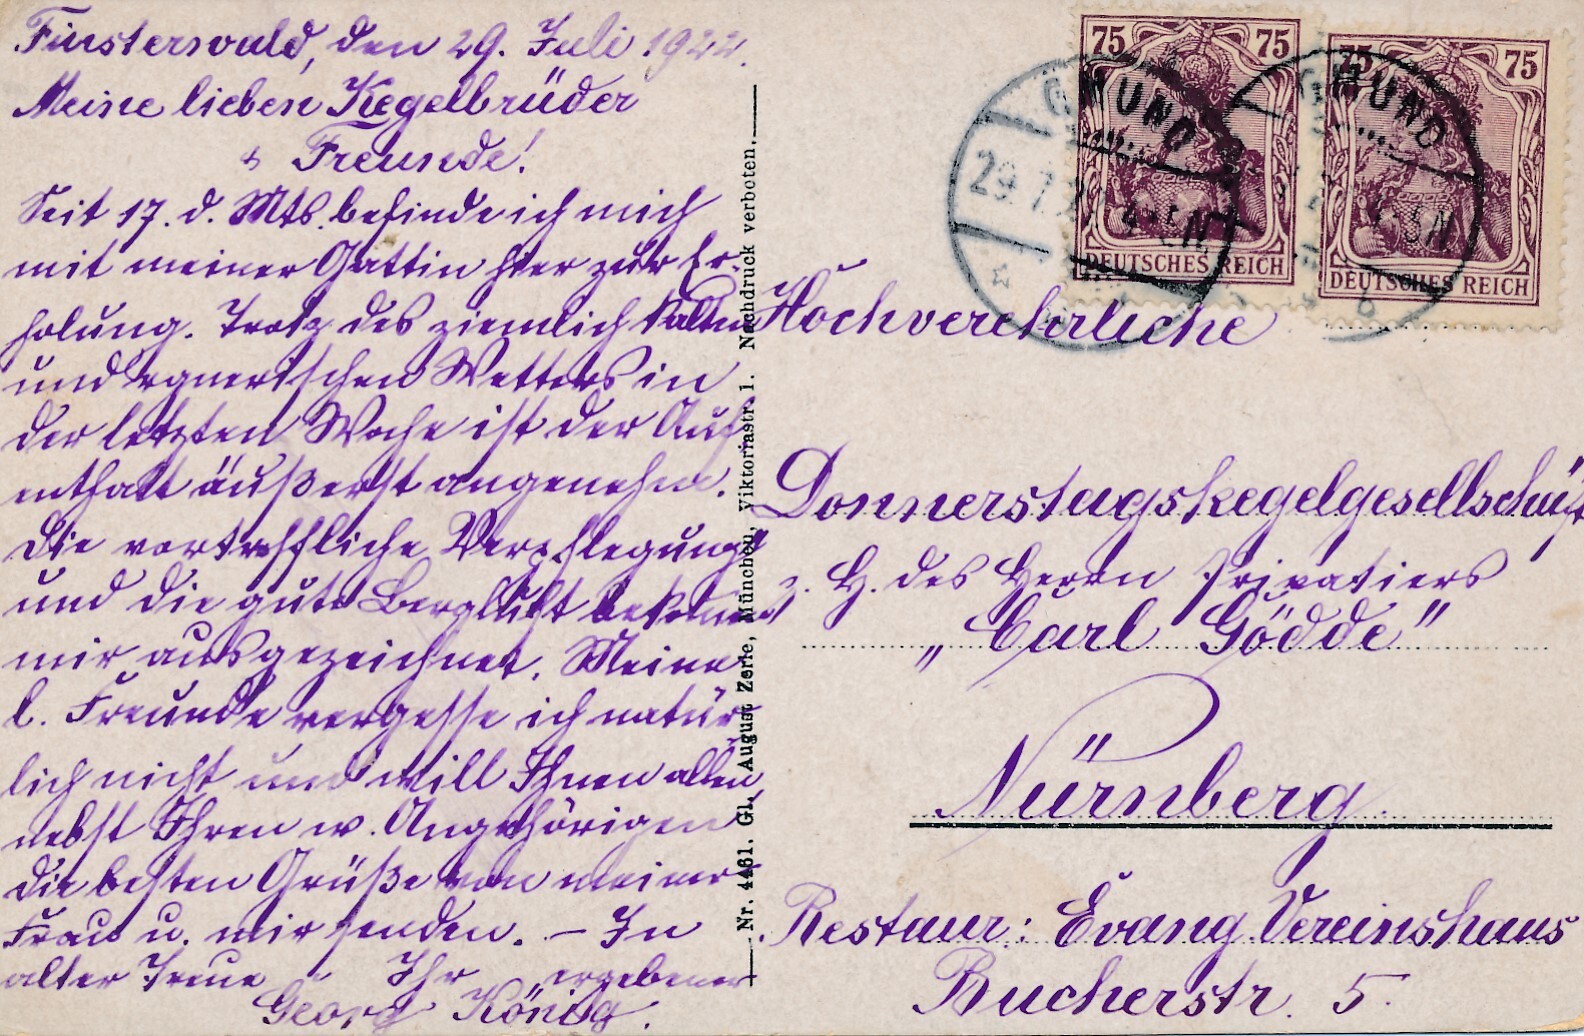 Finsterwald, den 29. Juli 1922.
Meine lieben Kegelbrüder
& Freunde!
Seit 17. d. Mts. befinde ich mich
mit meiner Gattin hier zur Er-
holung. Trotz des ziemlich kalten
und regnerischen Wetters in
der letzten Woche ist der Auf-
enthalt äußerst angenehm.
Die vortreffliche Verpflegung
und die gute Bergluft bekommt
mir ausgezeichnet. Meine
l. Freunde vergesse ich natür-
lich nicht und will Ihnen allen,
nebst Ihren w. Angehörigen
die besten Grüße von meiner
Frau u. mir senden. – In
alter Treue Ihr ergebener
Georg König.
Nr. 4461. Gl. August Zerle, München, Viktoriastr. 1. Nachdruck verboten.
75 75
DEUTSCHES REICH
75 75
DEUTSCHES REICH
GMUND
29.7.22 4-5N
GMUND
Hochverehrliche
Donnerstagskegelgesellschaft
z. H. des Herrn Privatiers
„Carl Gödde"
Nürnberg
Restaur: Evang. Vereinshaus
Bucherstr. 5.